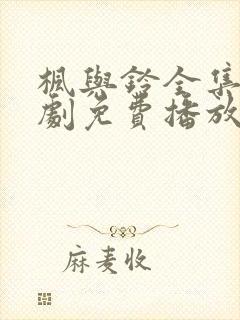 楓與鈴全集
劇免費播放
麻麦收